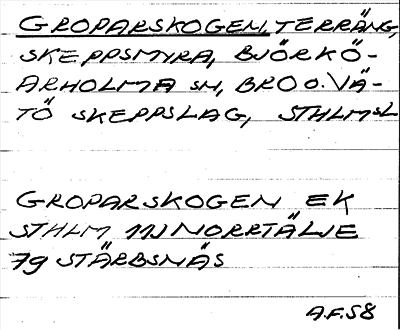 GROPARSKOGEN, TERRÄNG,
SKEPPSMYRA, BJÖRKÖ-
ARHOLMA SN, BRO O. VÄ-
TÖ SKEPPSLAG, STHLMSL
GROPARSKOGEN EK
STHLM 11J NORRTÄLJE
7g STÄRBSNÄS
A.F.58